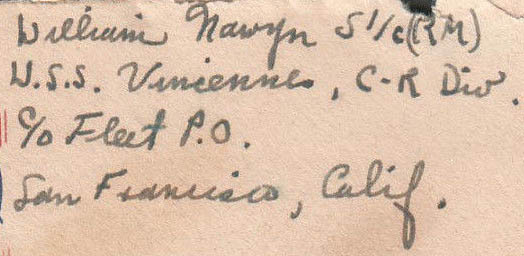 William Nawyn S1/c(RM)
U.S.S. Vincennes, C-R Div.
c/o Fleet P.O.
San Francisco, Calif.